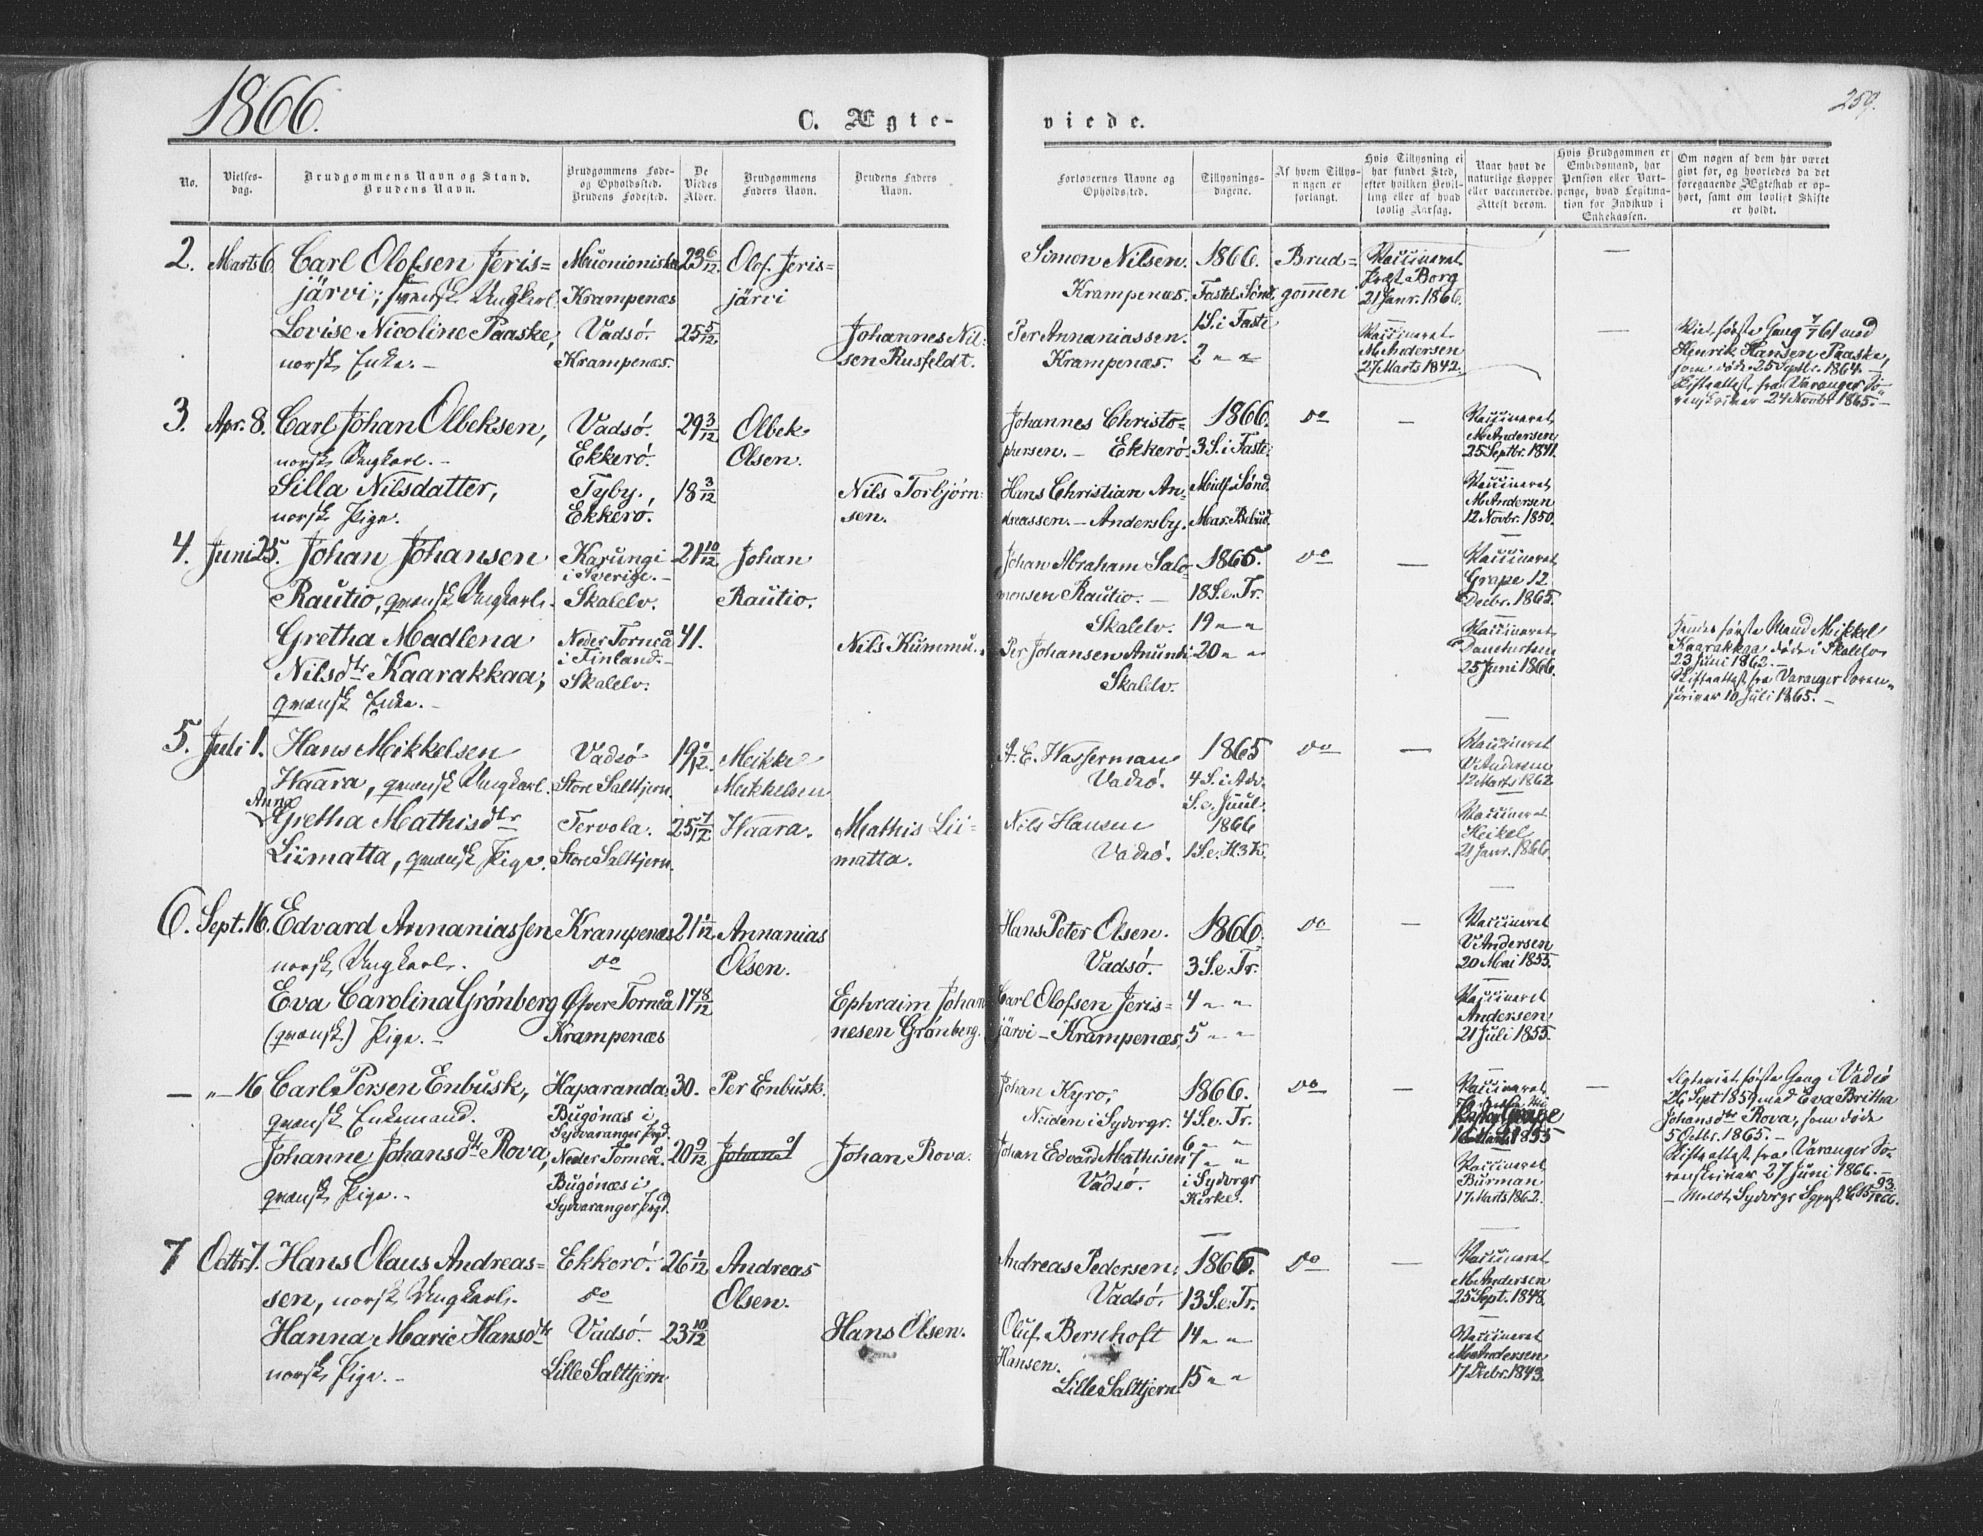 1866.
C. Ægte-
viede.
259.
No.
Vielses-
dag.
Brudgommens Navn og Stand.
Brudens Navn.
Brudgommens Føde-
og Opholdssted.
Brudens Fødested.
De
Viedes
Alder.
Brudgommens
Faders Navn.
Brudens Faders
Navn.
Forlovernes Navne og
Opholdssted.
Tillysnings-
dagene.
Af hvem Tillys-
ningen er
forlangt.
Hvis Tillysning ei
har fundet Sted,
efter hvilken Bevil-
ling eller af hvad
lovlig Aarsag.
Naar havt de
naturlige Kopper
eller vaccinerede.
Attest derom.
Hvis Brudgommen er
Embedsmand, har
Pension eller Vart-
penge, hvad Legitima-
tion for Indskud i
Enkekassen.
Om nogen af dem har været
gift for, og hvorledes da det
foregaaende Ægteskab er op-
hørt, samt om lovligt Skifte
er holdt.
2. Marts 6. Carl Olofsen Jeris= Muonioniska 23 6/12 Olof Jeris= Simon Nilsen. 1866. Brud= Vaccineret
järvi, svensk Ungkarl. Krampenæs järvi Krampenæs. Fastel. Sønd. gommen Præst Borg
21 Janr. 1866.
Lovise Nicoline Paaske, Vadsö. 25 5/12 Johannes Nil= Per Annaniassen. 1 S. i Faste Vaccineret Viet første Gang 7/7 61 med
norsk Enke. – Krampenæs. sen Rusfeldt. Krampenæs. 2 " " M. Andersen Henrik Hansen Paaske,
27 Marts 1842. som døde 25 Septbr. 1864. –
Skifteattest fra Varanger So=
renskriver 24 Novbr. 1865. –
3. Apr. 8. Carl Johan Olbeksen, Vadsö. 29 3/12 Olbek Johannes Christo= 1866. do – Vaccineret
norsk Ungkarl. – Ekkerö. Olsen. phersen. – Ekkerö. 3 S. i Faste M. Andersen
25 Septbr. 1841.
Silla Nilsdatter, Tyby, 18 3/12 Nils Torbjørn= Hans Christian An= Midf. Sønd. Vaccineret
norsk Pige. Ekkerö. sen. dreassen. – Andersby. Mar. Bebud. M. Andersen
12 Novbr. 1850.
4. Juni 25. Johan Johansen Karungi 21 10/12 Johan Johan Abraham Salo= 1865. do – Vaccineret
i Sverige. –
Rautio, qvænsk Ungkarl. Skalelv. Rautio. monsen Rautio. – 18 S. e. Tr. Grape 12
Decbr. 1865.
Skalelv. 19 " "
Gretha Madlena Neder Torneå 41. Nils Kummu. Per Johansen Anundi 20 " " Vaccineret Hendes første Mand Mikkel
Nilsdtr Kaarakkaa, i Finland. – Skalelv. 25 Juni 1866. Kaarakkaa døde i Skalelv
Skalelv. 23 Juni 1862. –
qvænsk Enke. – Skifteattest fra Varanger Soren=
skriver 10 Juli 1865. –
5. Juli 1. Hans Mikkelsen Vadsö 19 1/12 Mikkel A. E. Wasserman 1865 do – Vaccineret
Haara, qvænsk Ungkarl. Store Salttjern. Mikkelsen Vadsö. 4 S. i Adv. V. Andersen
S. e. Juul. 12 Marts 1862
Anna
Gretha Mathisdtr Tervola. 25 7/12 Haara. Mathis Lii= Nils Hansen 1866 Vaccineret
Liimatta, qvænsk Pige. Store Salttjern. matta. Vadsö. 1 S. e. H3K. Heikel
21 Janr. 1866.
6. Sept. 16. Edvard Annaniassen Krampenæs 21 1/12 Annanias Hans Peter Olsen. 1866. do – Vaccineret
norsk Ungkarl. do Olsen. Vadsö. 3 S. e. Tr. V. Andersen
20 Mai 1855.
Eva Carolina Grønberg Øfver Torneå 17 8/12 Ephraim Johan Carl Olofsen Jeris= 4 " " Vaccineret
(qvænsk) Pige. – Krampenæs nesen Grønberg. järvi – Krampenæs. 5 " " Andersen
21 Juli 1855.
– " – 16 Carl Persen Enbusk, Haparanda. 30. Per Enbusk. Johan Kyrö, 1866. do – Vaccineret – Ægteviet første Gang i Vadsö
qvænsk Enkemand. Bugönæs i Neiden i Sydvrgr. 4 S. e. Tr. 26 Sept 1859 med Eva Britha
Sydvaranger Prgd. 6 " " Johansdtr Rova, som døde
Johanne Johansdtr Rova, Neder Torneå. 20 9/12 Johan Rova. Johan Edvard Mathisen 7 " " Vaccineret 5 Octbr. 1865. –
qvænsk Pige. – Bugönæs i, Vadsö. i Sydvrgr. Burman Skifteattest fra Varanger So=
Sydvaranger Prgd. Kirke. 17 Marts 1862. renskriver 27 Juni 1866. –
7 Octbr. 7. Hans Olaus Andreas= Ekkerö. 26 1/12 Andreas Andreas Pedersen. 1866. do – Vaccineret
sen, norsk Ungkarl. do Olsen. Vadsö. 13 S. e. Tr. M. Andersen
25 Sept. 1848.
Hanna Marie Hansdtr Vadsö. 23 10/12 Hans Olsen. Oluf Bernhoft 14 " " Vaccineret
norsk Pige. – Lille Salttjern Hansen. M. Andersen
Lille Salttjern. 15 " " 17 Decbr. 1843.